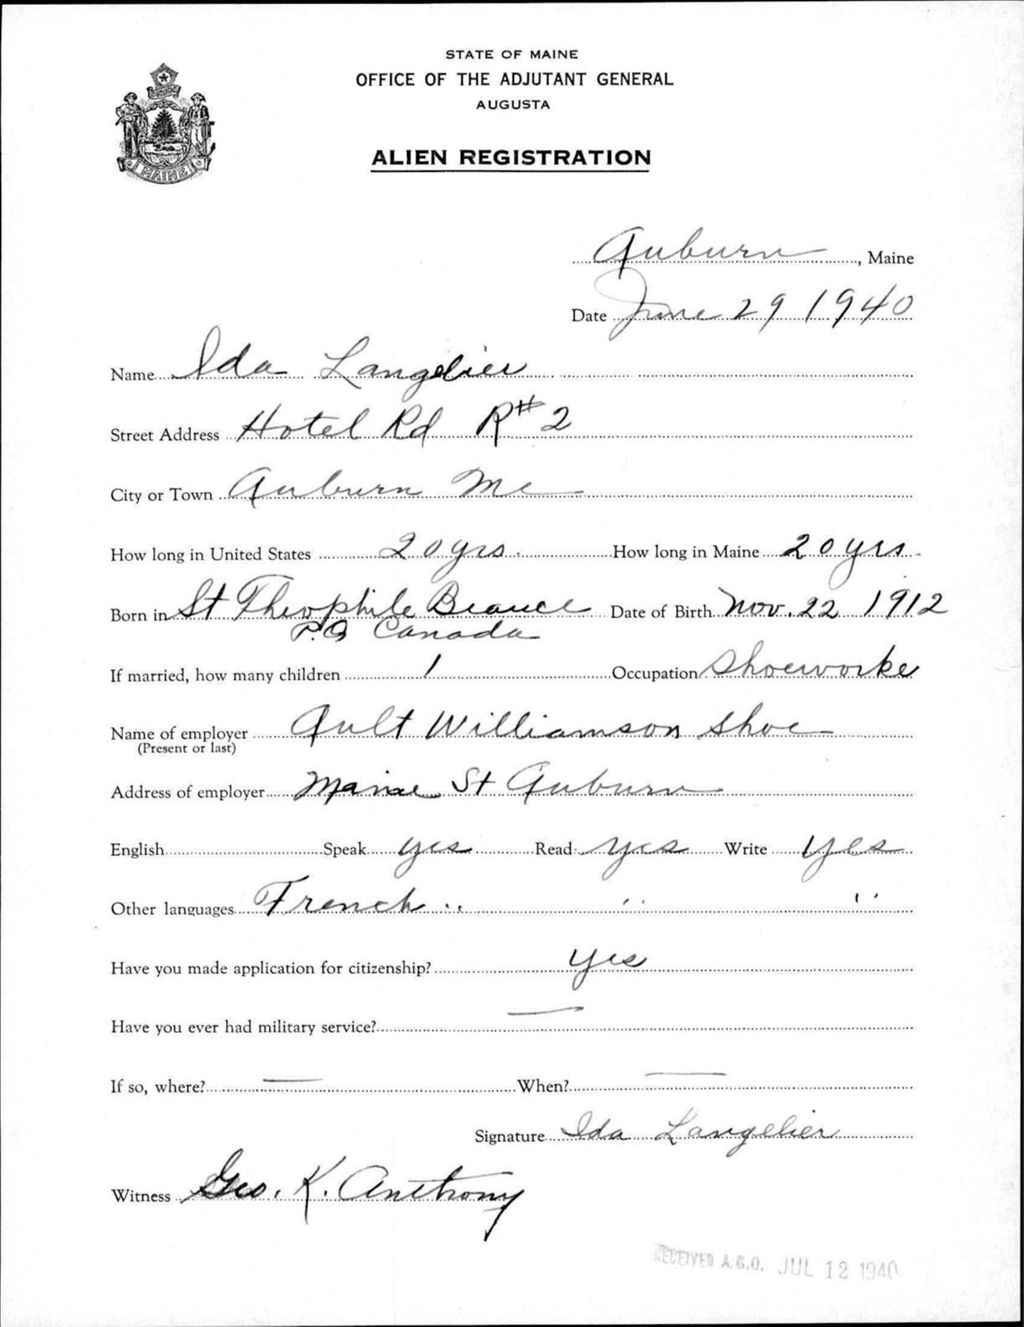 STATE OF MAINE
OFFICE OF THE ADJUTANT GENERAL
AUGUSTA
ALIEN REGISTRATION
MAINE
Auburn, Maine
Date June 29 1940
Name Ida Langelier
Street Address Hotel Rd R#2
City or Town Auburn Me
How long in United States 20 yrs. How long in Maine 20 yrs.
Born in St Theophile Beauce Date of Birth Nov. 22 1912
P.Q Canada
If married, how many children 1 Occupation Shoeworke
Name of employer Ault Williamson Shoe
(Present or last)
Address of employer Maine St Auburn
English Speak yes Read yes Write yes
Other languages French " " "
Have you made application for citizenship? yes
Have you ever had military service? —
If so, where? — When? —
Signature Ida Langelier
Witness Geo. K. Anthony
RECEIVED A.G.O. JUL 12 1940